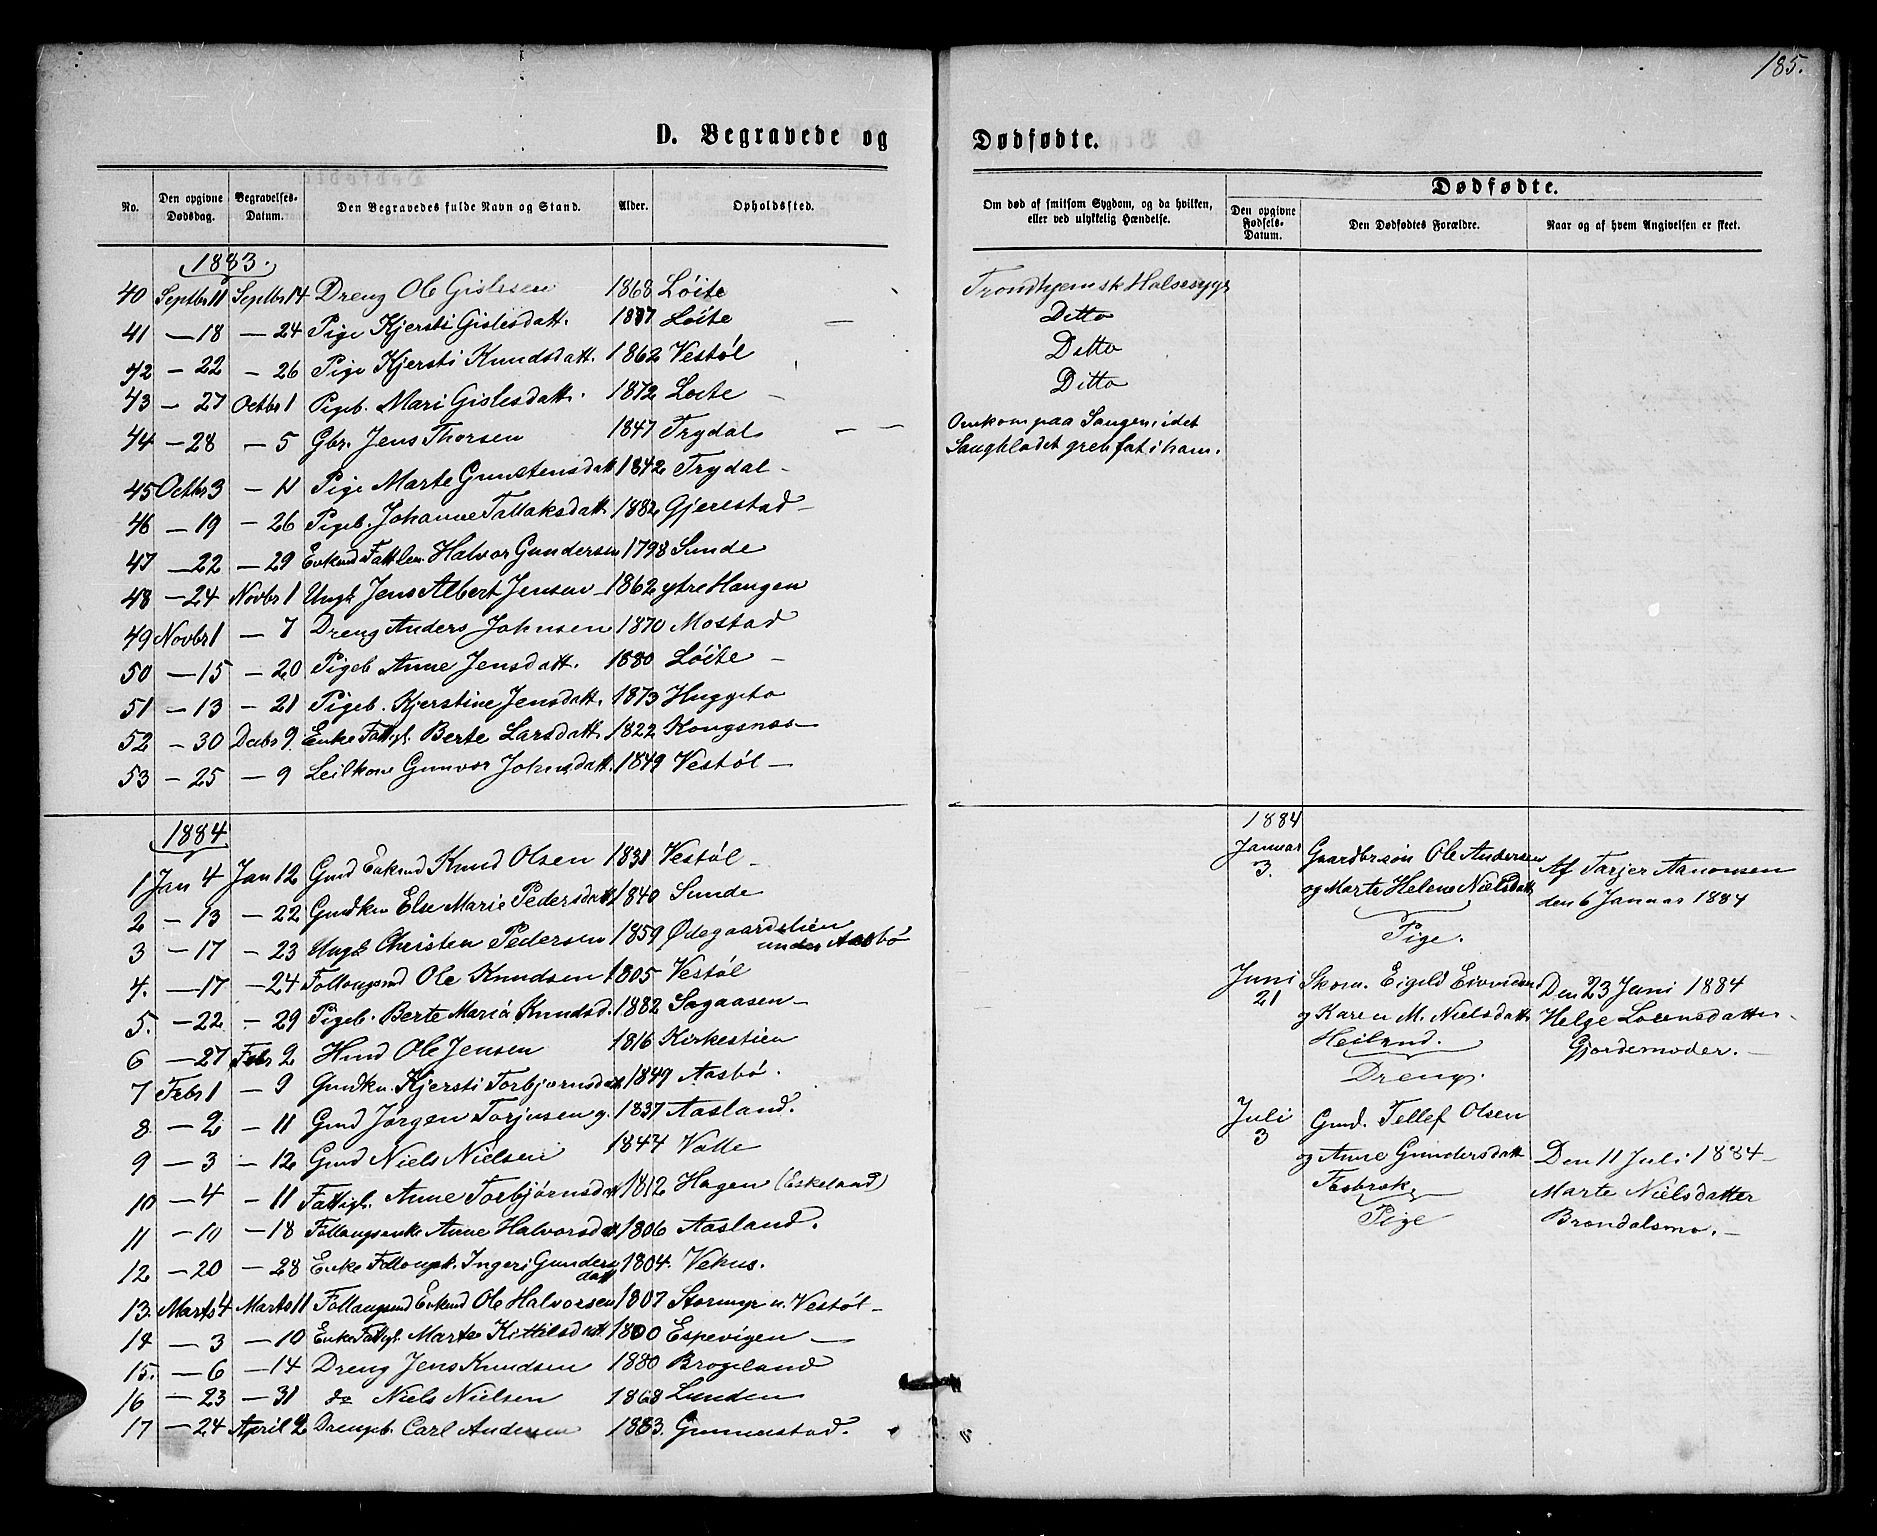 185.
D. Begravede og Dødfødte.
No. Den opgivne Dødsdag. Begravelses-Datum. Den Begravedes fulde Navn og Stand. Alder. Opholdssted. Om død af smitsom Sygdom, og da hvilken, eller ved ulykkelig Hændelse.
Dødfødte.
Den opgivne Fødsels-Datum. Den Dødfødtes Forældre. Naar og af hvem Angivelsen er skeet.
1883.
40 Septbr 11 Septbr 14 Dreng Ole Gislesen 1868 Löite Trondhjemsk Halsesyge
41 — 18 — 24 Pige Kjersti Gislesdatt. 1877 Löite — Ditto
42 — 22 — 26 Pige Kjersti Knudsdatt. 1862 Vestöl Ditto
43 — 27 Octbr 1 Pigeb. Mari Gislesdatt. 1872 Löite — Ditto
44 — 28 — 5 Gbr. Jens Thorsen 1847 Trydal — — Omkom paa Saugen, idet
Saugbladet greb fat i ham.
45 Octbr 3 — 11 Pige Marte Gunstensdatt 1842 Trydal —
46 — 19 — 26 Pigeb. Johanne Tallaksdatt 1882 Gjerestad —
47 — 22 — 29 Enkmd Fattlem Halvor Gundersen 1798 Sunde
48 — 24 Novbr 1 Ungk. Jens Albert Jensen — 1862 ytre Haugen
49 Novbr 1 — 7 Dreng Anders Johnsen 1870 Mostad
50 — 15 — 20 Pigeb Anne Jensdatt. 1880 Löite —
51 — 13 — 21 Pigeb. Kjerstine Jensdatt. 1873 Huggeto
52 — 30 Decbr 9 Enke Fattigl. Berte Larsdatt 1822 Kongsnæs —
53 — 25 — 9 Leilkone Gunvor Johnsdatt. 1849 Vestöl —
1884
1 Jan 4 Jan 12 Gmd Enkmd Knud Olsen 1831 Vestöl —
2 — 13 — 22 Gmdkn Else Marie Pedersdatt 1840 Sunde
3 — 17 — 23 Ungk Christen Pedersen 1859 Ødegaardslien
under Aasbö
4. — 17 — 24 Föllaugsmd Ole Knudsen 1805 Vestöl
5. — 22 — 29 Pigeb. Berte Maria Knudsd. 1882 Sagaasen —
6 — 27 Febr 2 Hmd Ole Jensen 1816 Kirkestien
7 Febr 1 — 9 Gmdkn. Kjersti Torbjørnsdatt 1849 Aasbö.
8 — 2 — 11 Gmd Jørgen Torjusen 1837 Aasland.
9 — 3 — 12 Gmd Niels Nielsen 1847 Valle
10 — 4 — 11 Fattigl. Anne Torbjørnsdatt 1812 Hagen (Eskeland)
11 — 10 — 18 Föllaugsenke Anne Halvorsdatt 1806 Aasland.
12 — 20 — 28 Enke Ingeri Gunders
datt 1804. Vehus.
13. Marts 4 Marts 11 Föllaugsmd Enkmd Ole Halvorsen 1807 Stormyr u. Vestöl —
14 — 3 — 10 Enke Fattigl. Marte Kittilsdatt 1800 Espevigen —
15. — 6 — 14 Dreng Jens Knudsen 1880 Brogeland
16 — 23 — 31 do Niels Nielsen 1868 Lunden
17 — 24 April 2 Drengeb. Carl Andersen 1883. Gunnerstad.
1884
Januar
3.
Gaardbrsön Ole Andersen
og Marte Helene Nielsdatt
Pige.
Af Tarjer Aanonsen
den 6 Januar 1884
Juni
21
Skom. Eigeld Eivindsen
og Karen M. Nielsdatt
Heiland.
Dreng.
Den 23 Juni 1884
Helge Lorensdatter
Gjordemoder. —
Juli
3
Gmd. Tellef Olsen
og Anne Gundersdatt
Pige
Den 11 Juli 1884 —
Marte Nielsdatter
Brøndalsmo. —